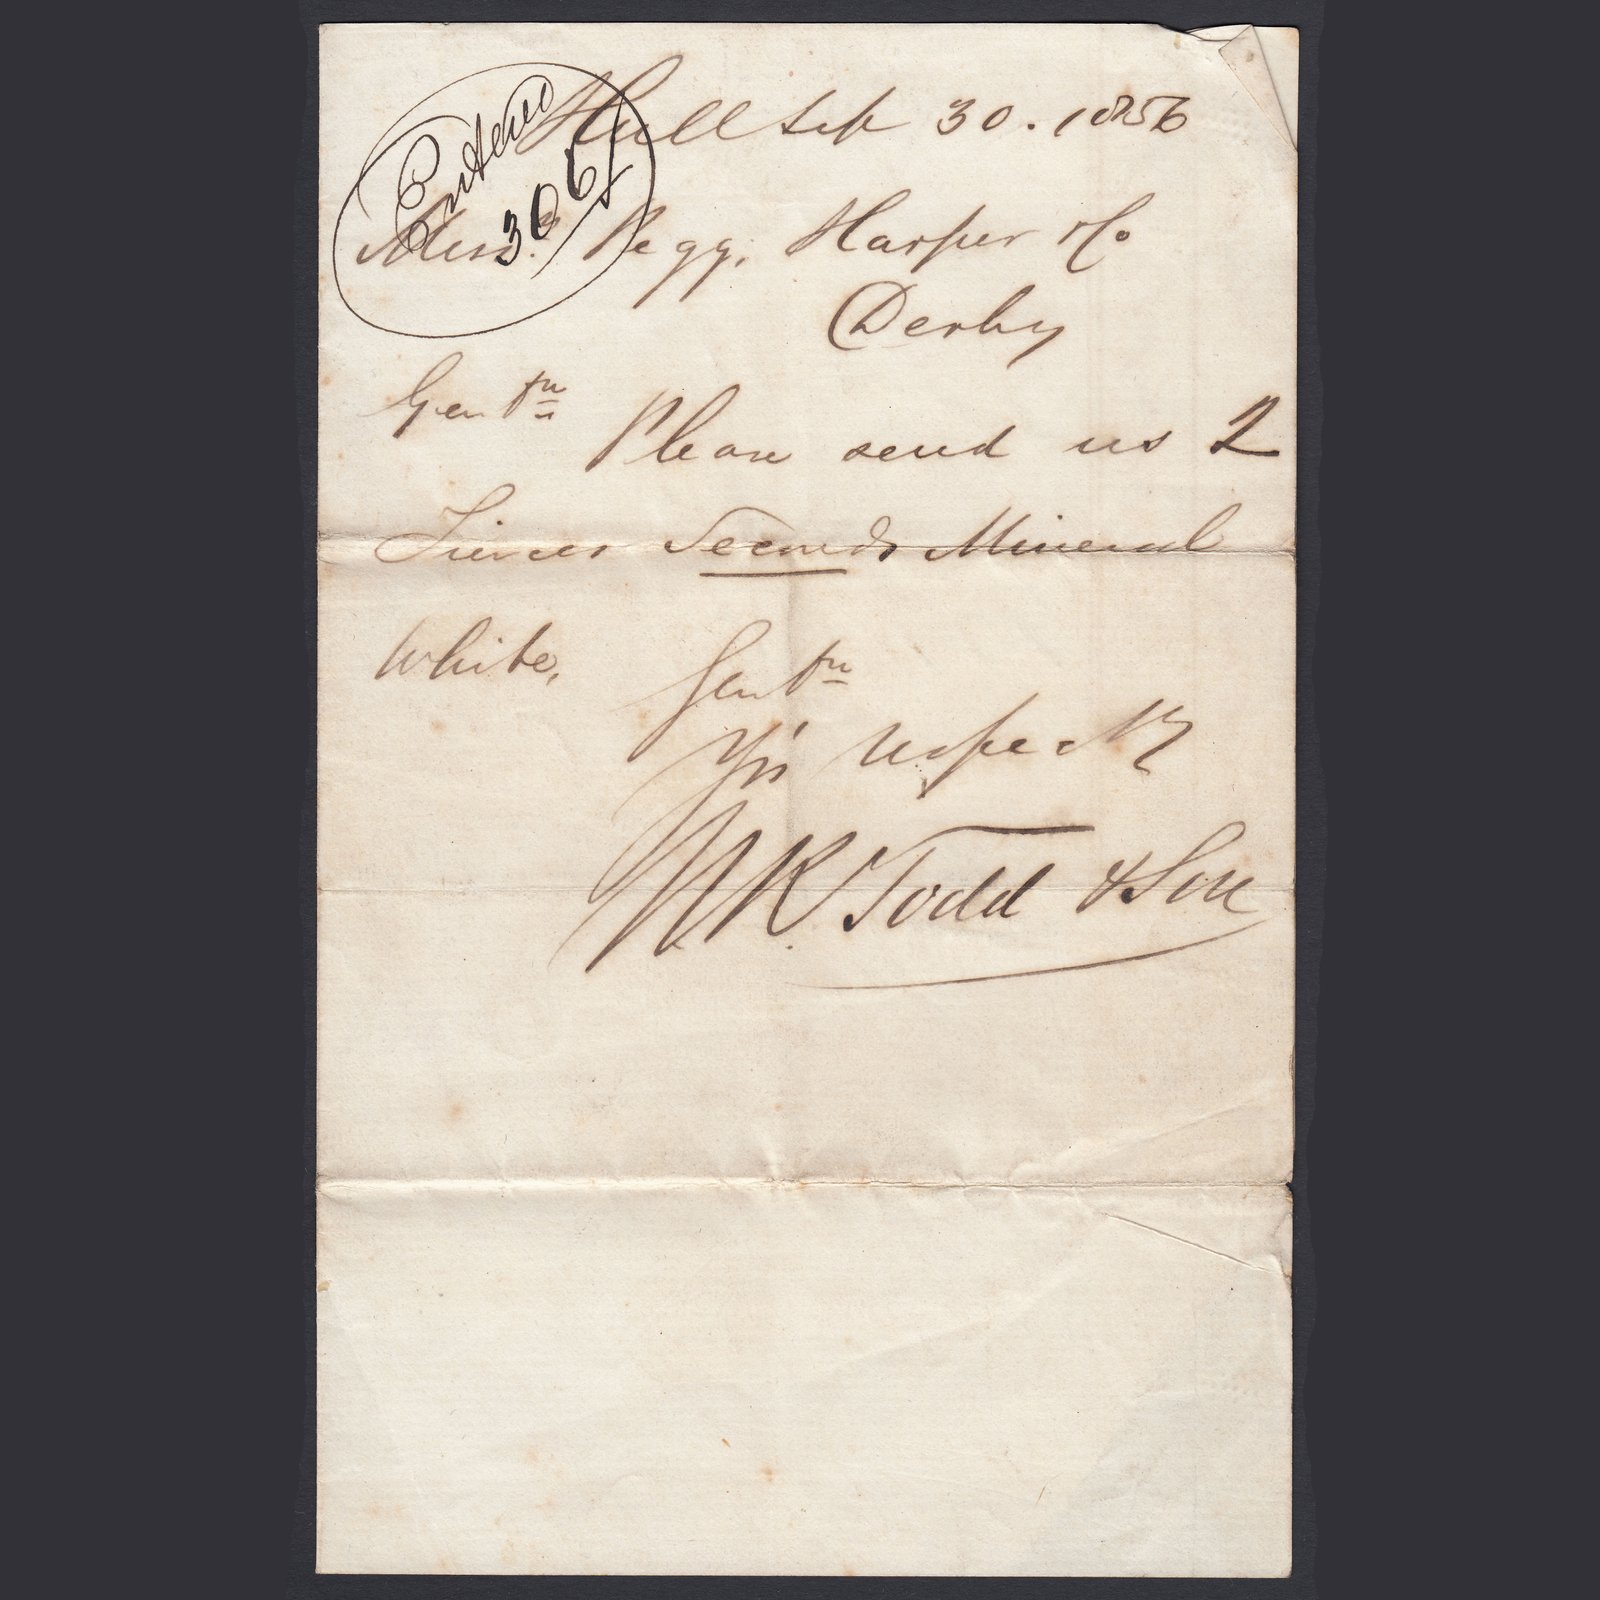 Entered
306
Hull Sep 30. 1856
Messrs. Pegg, Harper & Co.
Derby
Gentn
Please send us 2
Tierces Seconds Mineral
White,
Gentn
Yrs respectly
W K Todd & Son